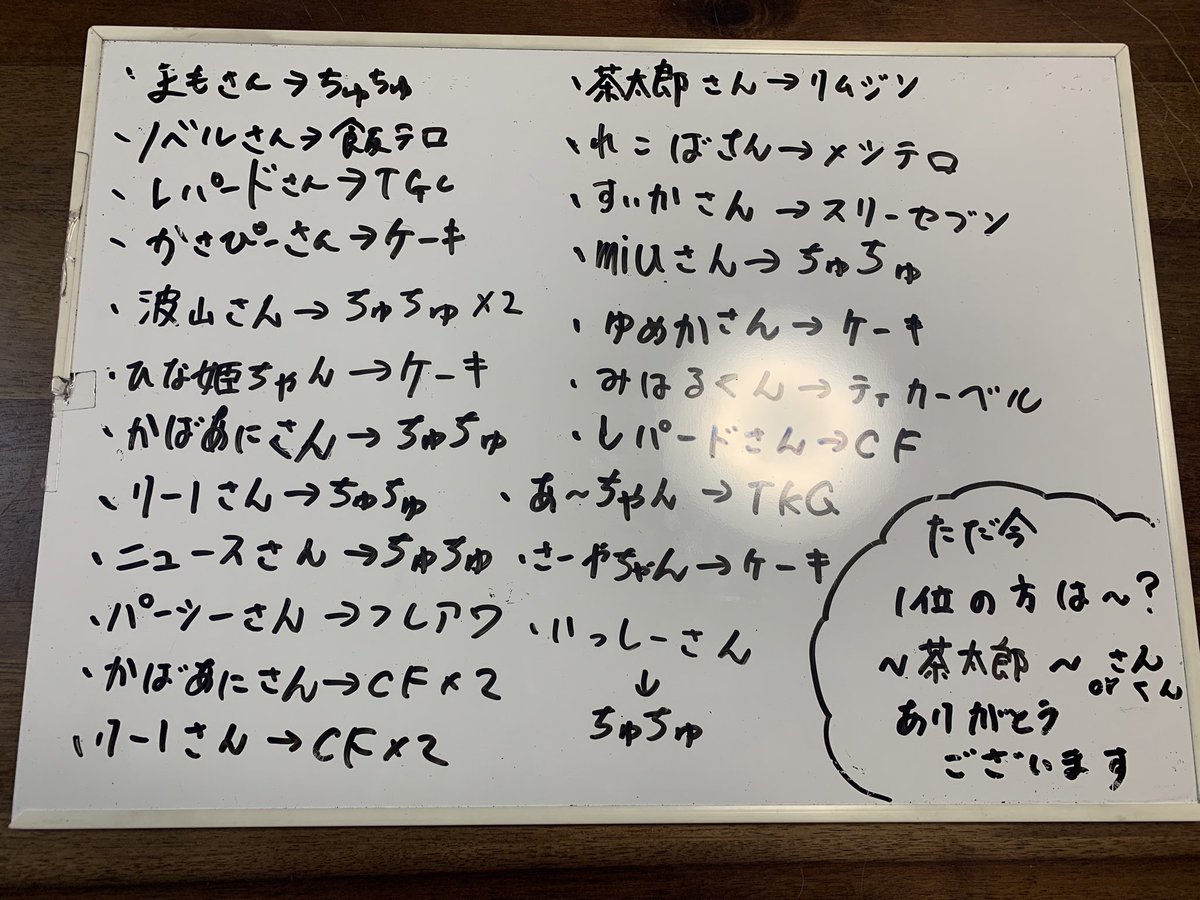 ・まもさん→ちゅちゅ
・ノベルさん→飯テロ
・レパードさん→TGC
・かさぴーさん→ケーキ
・波山さん→ちゅちゅ×2
・ひな姫ちゃん→ケーキ
・かばあにさん→ちゅちゅ
・リーしさん→ちゅちゅ
・ニュースさん→ちゅちゅ
・パーシーさん→フレアワ
・かばあにさん→CF×2
・リーしさん→CF×2
・茶太郎さん→リムジン
・れこばさん→メシテロ
・すいかさん→スリーセブン
・miuさん→ちゅちゅ
・ゆめかさん→ケーキ
・みはるくん→ティカーベル
・レパードさん→CF
・あ〜ちゃん→TKG
・さーやちゃん→ケーキ
・いっしーさん
↓
ちゅちゅ
ただ今
1位の方は〜?
〜茶太郎〜さん
or くん
ありがとう
ございます